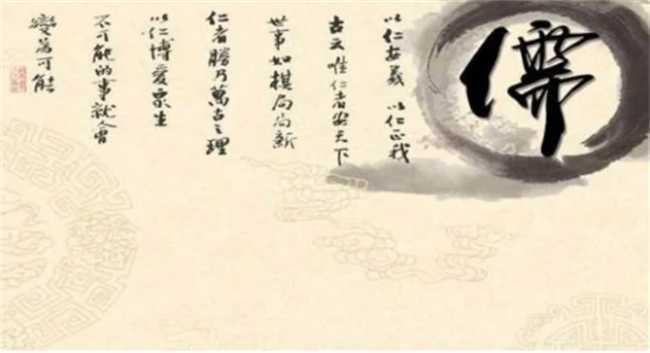 儒
以仁安義 以仁正我
古文唯仁者安天下
世事如棋局局新
仁者勝乃萬古之理
以仁博愛眾生
不可能的事就會
變為可能